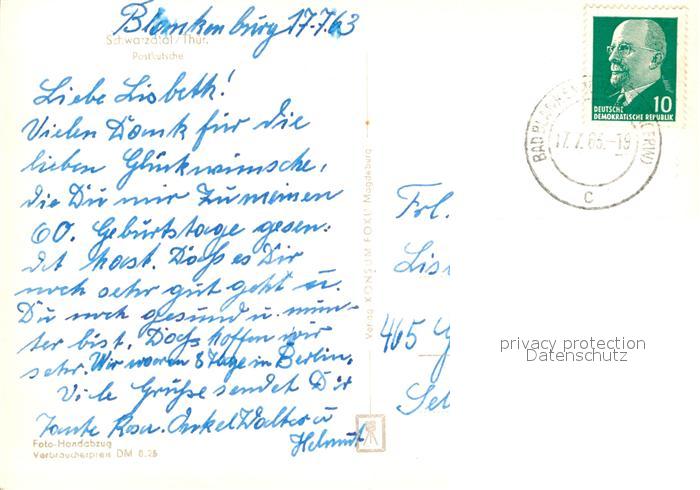 Blankenburg 17.7.63
Schwarzatal/Thür.
Postkutsche
Liebe Lisbeth!
Vielen Dank für die
lieben Glückwünsche,
die Du mir zu meinen
60. Geburtstage gesen-
det hast. Dass es Dir
noch sehr gut geht u.
Du noch gesund u. mun-
ter bist. Dass hoffen wir
sehr. Wir waren 8 Tage in Berlin.
Viele Grüße sendet Dir
Tante Rosa. Onkel Walter u
Helmut
Foto-Handabzug
Verbraucherpreis DM 0.25
Verlag KONSUM FOKI Magdeburg
DEUTSCHE
DEMOKRATISCHE REPUBLIK
10
BAD BLANKEN
17.7.63.-19
c
Frl.
465
privacy protection
Datenschutz